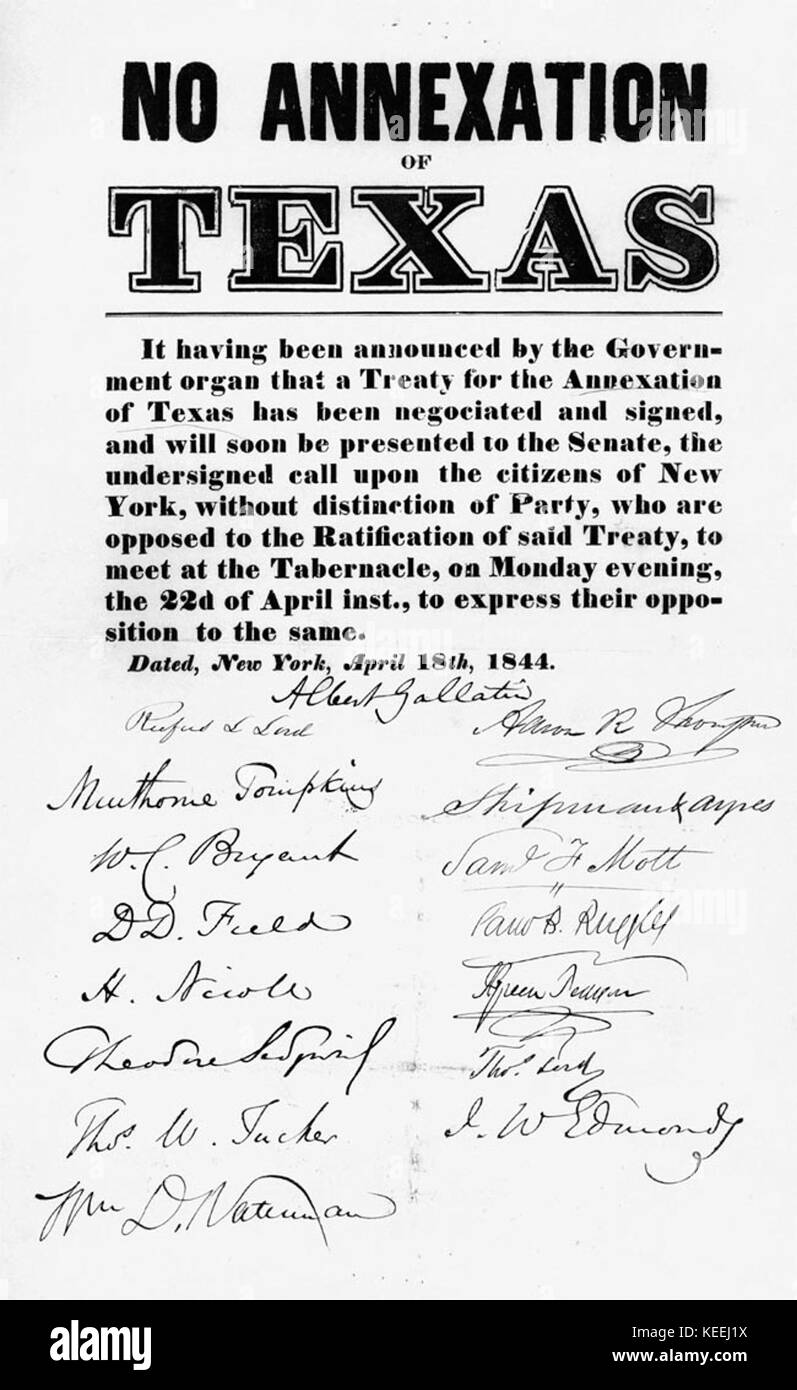 NO ANNEXATION
OF
TEXAS
It having been announced by the Govern-
ment organ that a Treaty for the Annexation
of Texas has been negociated and signed,
and will soon be presented to the Senate, the
undersigned call upon the citizens of New
York, without distinction of Party, who are
opposed to the Ratification of said Treaty, to
meet at the Tabernacle, on Monday evening,
the 22d of April inst., to express their oppo-
sition to the same.
Dated, New York, April 18th, 1844.
Albert Gallatin
Rufus L Lord
Aaron R Thompson
Minthorne Tompkins
Shipman & Ayres
W. C. Bryant
Saml F Mott
D D. Field
B. Ruggles
H. Nicoll
Theodore Sedgwick
Thos. Lord
Thos. W. Tucker
J. W Edmonds
Wm D. Waterman
alamy
Image ID: KEEJ1X
www.alamy.com